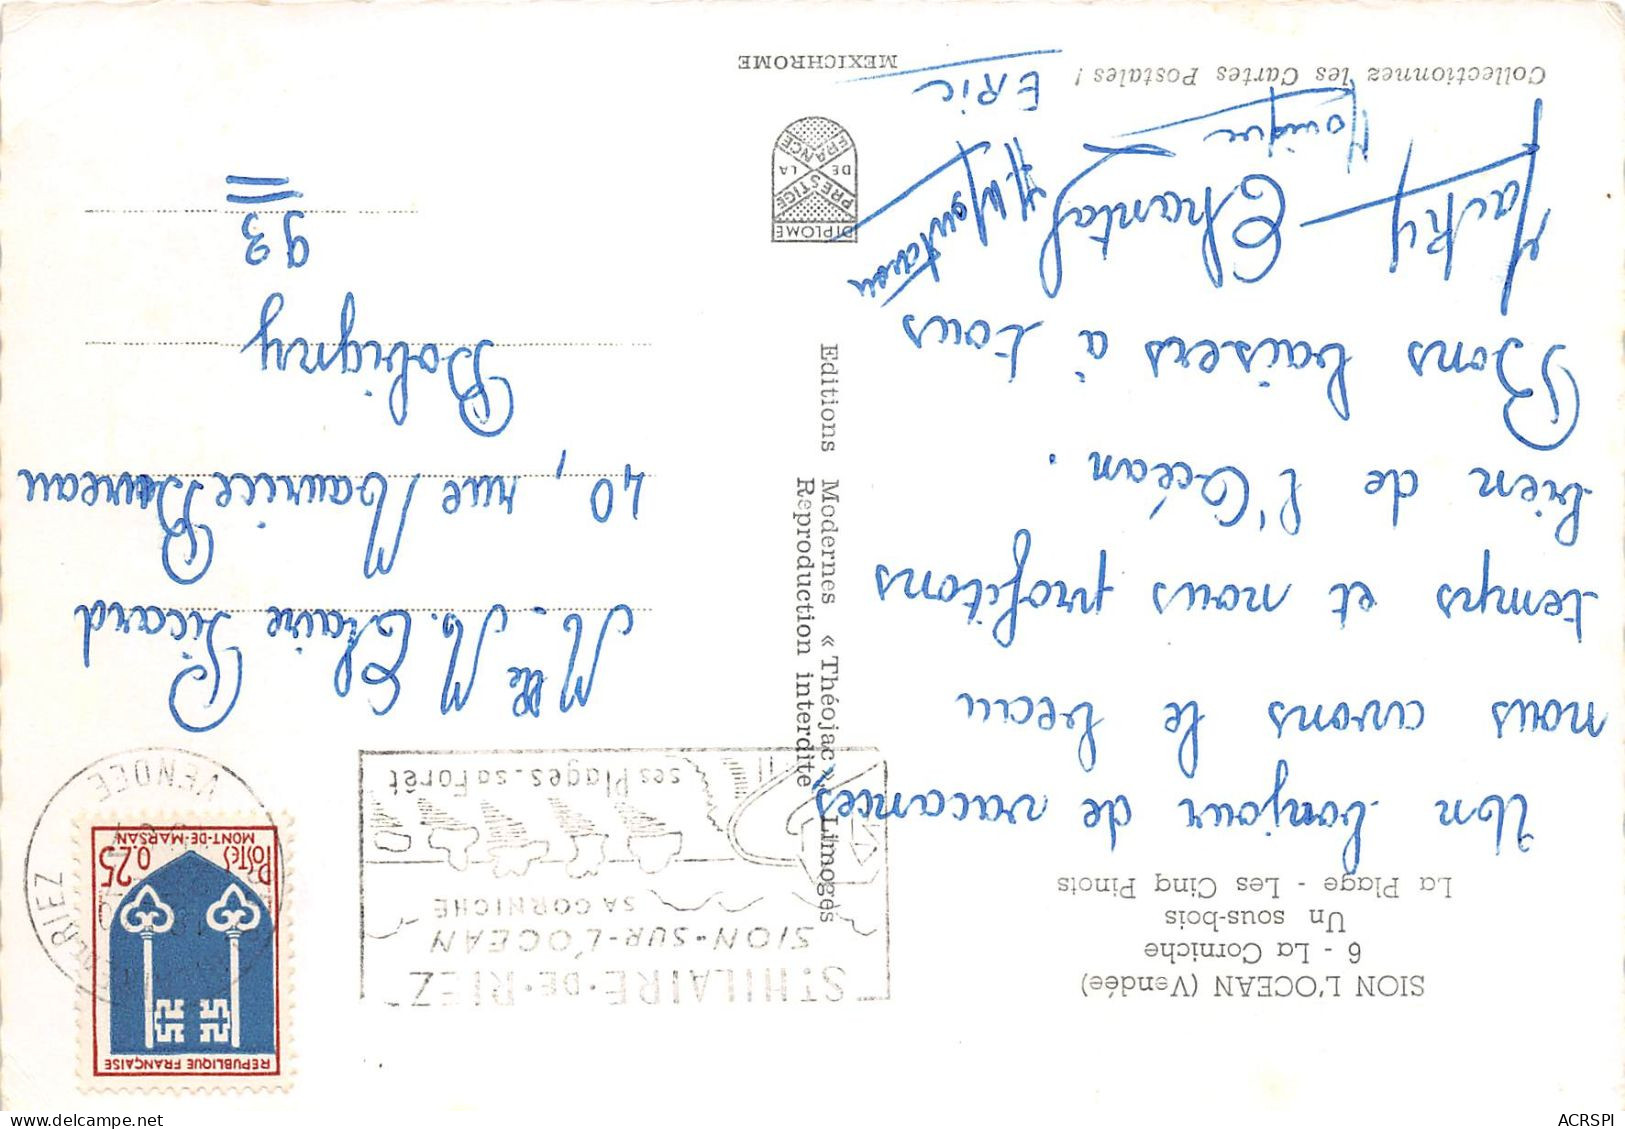 SION L'OCEAN (Vendée)
6 - La Corniche
Un sous-bois
La Plage - Les Cinq Pinots
Un bonjour de vacances
nous avons le beau
temps et nous profitons
bien de l'Océan.
Bons baisers à tous
Jacky Chantal
Monique
ERic
Collectionnez les Cartes Postales !
MEXICHROME
DIPLOME
PRESTIGE
DE LA
FRANCE
Editions Modernes « Théojac » Limoges
Reproduction interdite
ST HILAIRE-DE-RIEZ
SION-SUR-L'OCEAN
SA CORNICHE
ses Plages - sa Forêt
REPUBLIQUE FRANÇAISE
POSTES 0,25
MONT-DE-MARSAN
RIEZ
VENDEE
Melle M. M. Claire Picard
40, rue Maurice
Bobigny
93
delcampe.net
ACRSPI